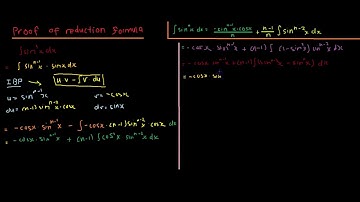 Proof of reduction formula
∫sinⁿx dx
= ∫ sinⁿ⁻¹x · sinx dx
IBP ⟶ uv − ∫v du
u = sinⁿ⁻¹x v = −cosx
du = (n−1) sinⁿ⁻²x · cosx dv = sinx
= −cosx · sinⁿ⁻¹x − ∫−cosx · (n−1) sinⁿ⁻²x cosx dx
= −cosx · sinⁿ⁻¹x + (n−1) ∫cos²x sinⁿ⁻²x dx
∫sinⁿx dx = −sinⁿ⁻¹x · cosx / n + n−1 / n ∫sinⁿ⁻²x dx
= −cosx sinⁿ⁻¹x + (n−1) ∫(1−sin²x) sinⁿ⁻²x dx
= −cosx sinⁿ⁻¹x + (n−1) ∫ sinⁿ⁻²x − sinⁿx dx
= −cosx · sin